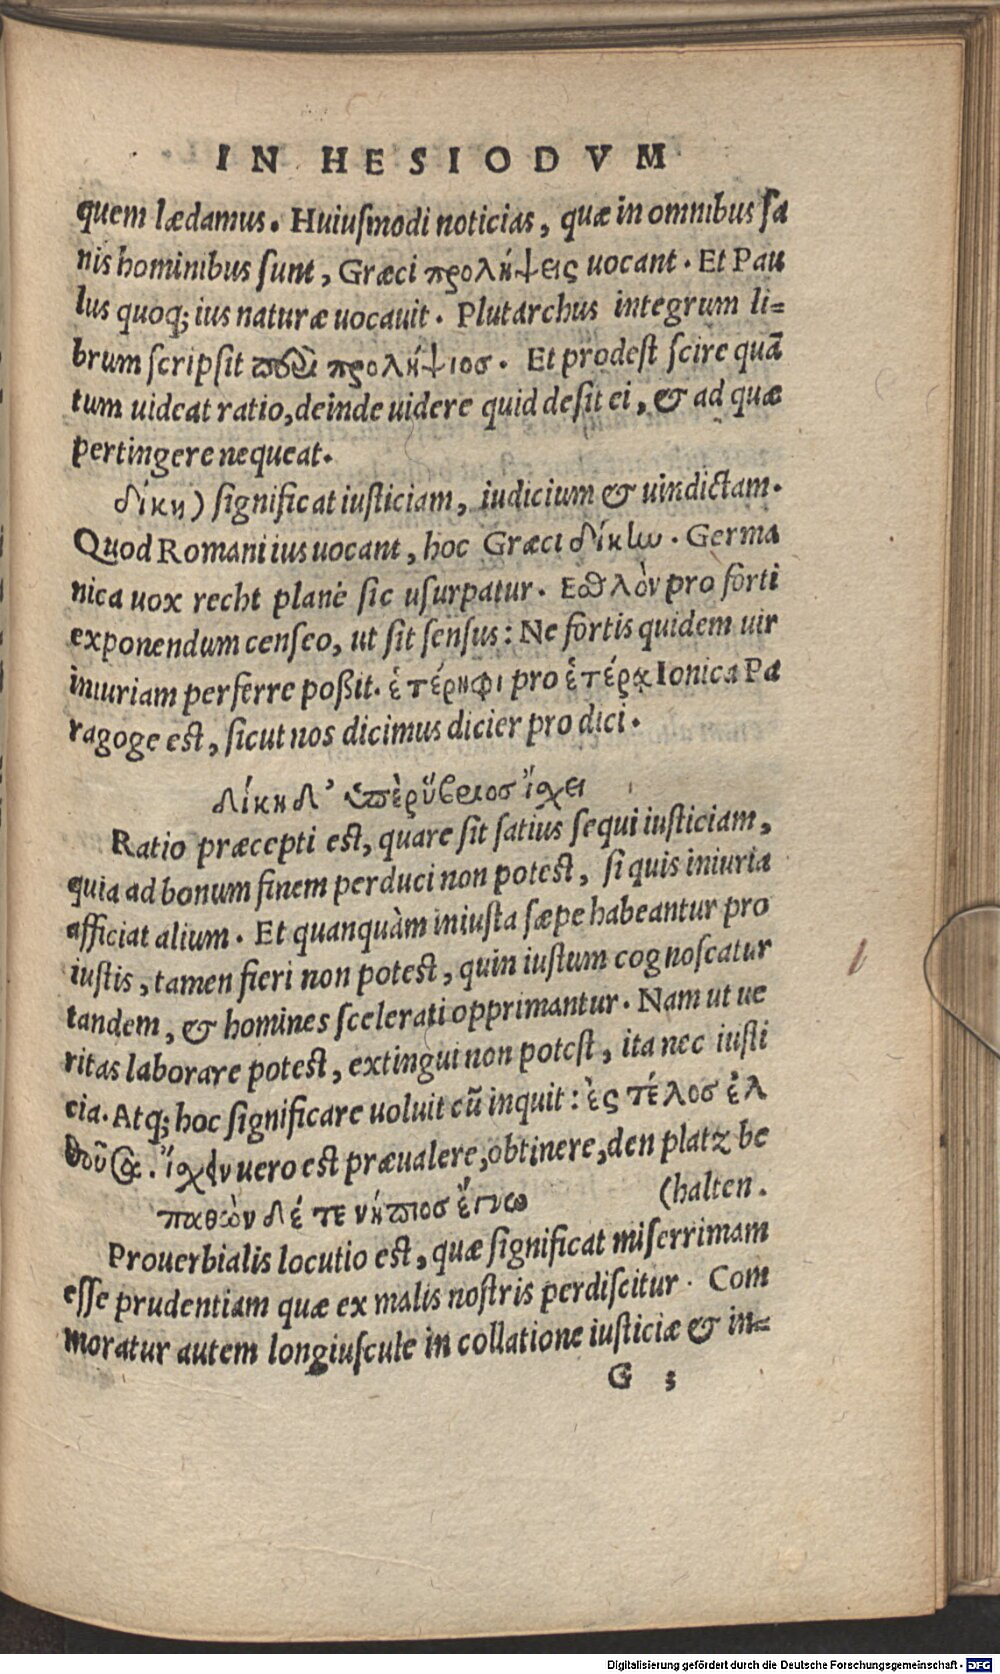 IN HESIODVM
quem lædamus. Huiuſmodi noticias, quæ in omnibus ſa
nis hominibus ſunt, Græci προλήψεις uocant. Et Pau
lus quoq; ius naturæ uocauit. Plutarchus integrum li=
brum ſcripſit περὶ προλήψιος. Et prodeſt ſcire quã
tum uideat ratio, deinde uidere quid deſit ei, & ad quæ
pertingere nequeat.
δίκη) ſignificat iuſticiam, iudicium & uindictam.
Quod Romani ius uocant, hoc Græci δίκην. Germa
nica uox recht planè ſic uſurpatur. Εσθλὸν pro forti
exponendum cenſeo, ut ſit ſenſus: Ne fortis quidem uir
iniuriam perferre poßit. ἑτέρηφι pro ἑτέρᾳ Ionica Pa
ragoge eſt, ſicut nos dicimus dicier pro dici.
δίκη δ’ ὑπὲρ ὕβριος ἴχει
Ratio præcepti eſt, quare ſit ſatius ſequi iuſticiam,
quia ad bonum finem perduci non poteſt, ſi quis iniuria
afficiat alium. Et quanquàm iniuſta ſæpe habeantur pro
iuſtis, tamen fieri non poteſt, quin iuſtum cognoſcatur
tandem, & homines ſcelerati opprimantur. Nam ut ue
ritas laborare poteſt, extingui non poteſt, ita nec iuſti
cia. Atq; hoc ſignificare uoluit cũ inquit: ἐς τέλος ἐλ
θοῦσα. ἴχειν uero eſt præualere, obtinere, den platz be
(halten.
παθὼν δέ τε νήπιος ἔγνω
Prouerbialis locutio eſt, quæ ſignificat miſerrimam
eſſe prudentiam quæ ex malis noſtris perdiſcitur. Com
moratur autem longiuſcule in collatione iuſticiæ & in=
G 3
Digitalisierung gefördert durch die Deutsche Forschungsgemeinschaft - DFG